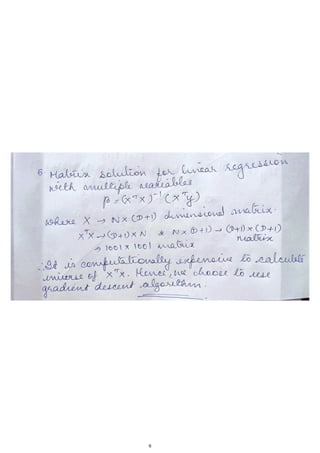 6. Matrix solution for linear regression
with multiple variables
β = (XᵀX)⁻¹(Xᵀy)
where X → N x (D+1) dimensional matrix.
XᵀX → (D+1) x N * N x (D+1) → (D+1) x (D+1)
matrix
→ 1001 x 1001 matrix
∴ It is computationally expensive to calculate
inverse of XᵀX. Hence, we choose to use
gradient descent algorithm.
6